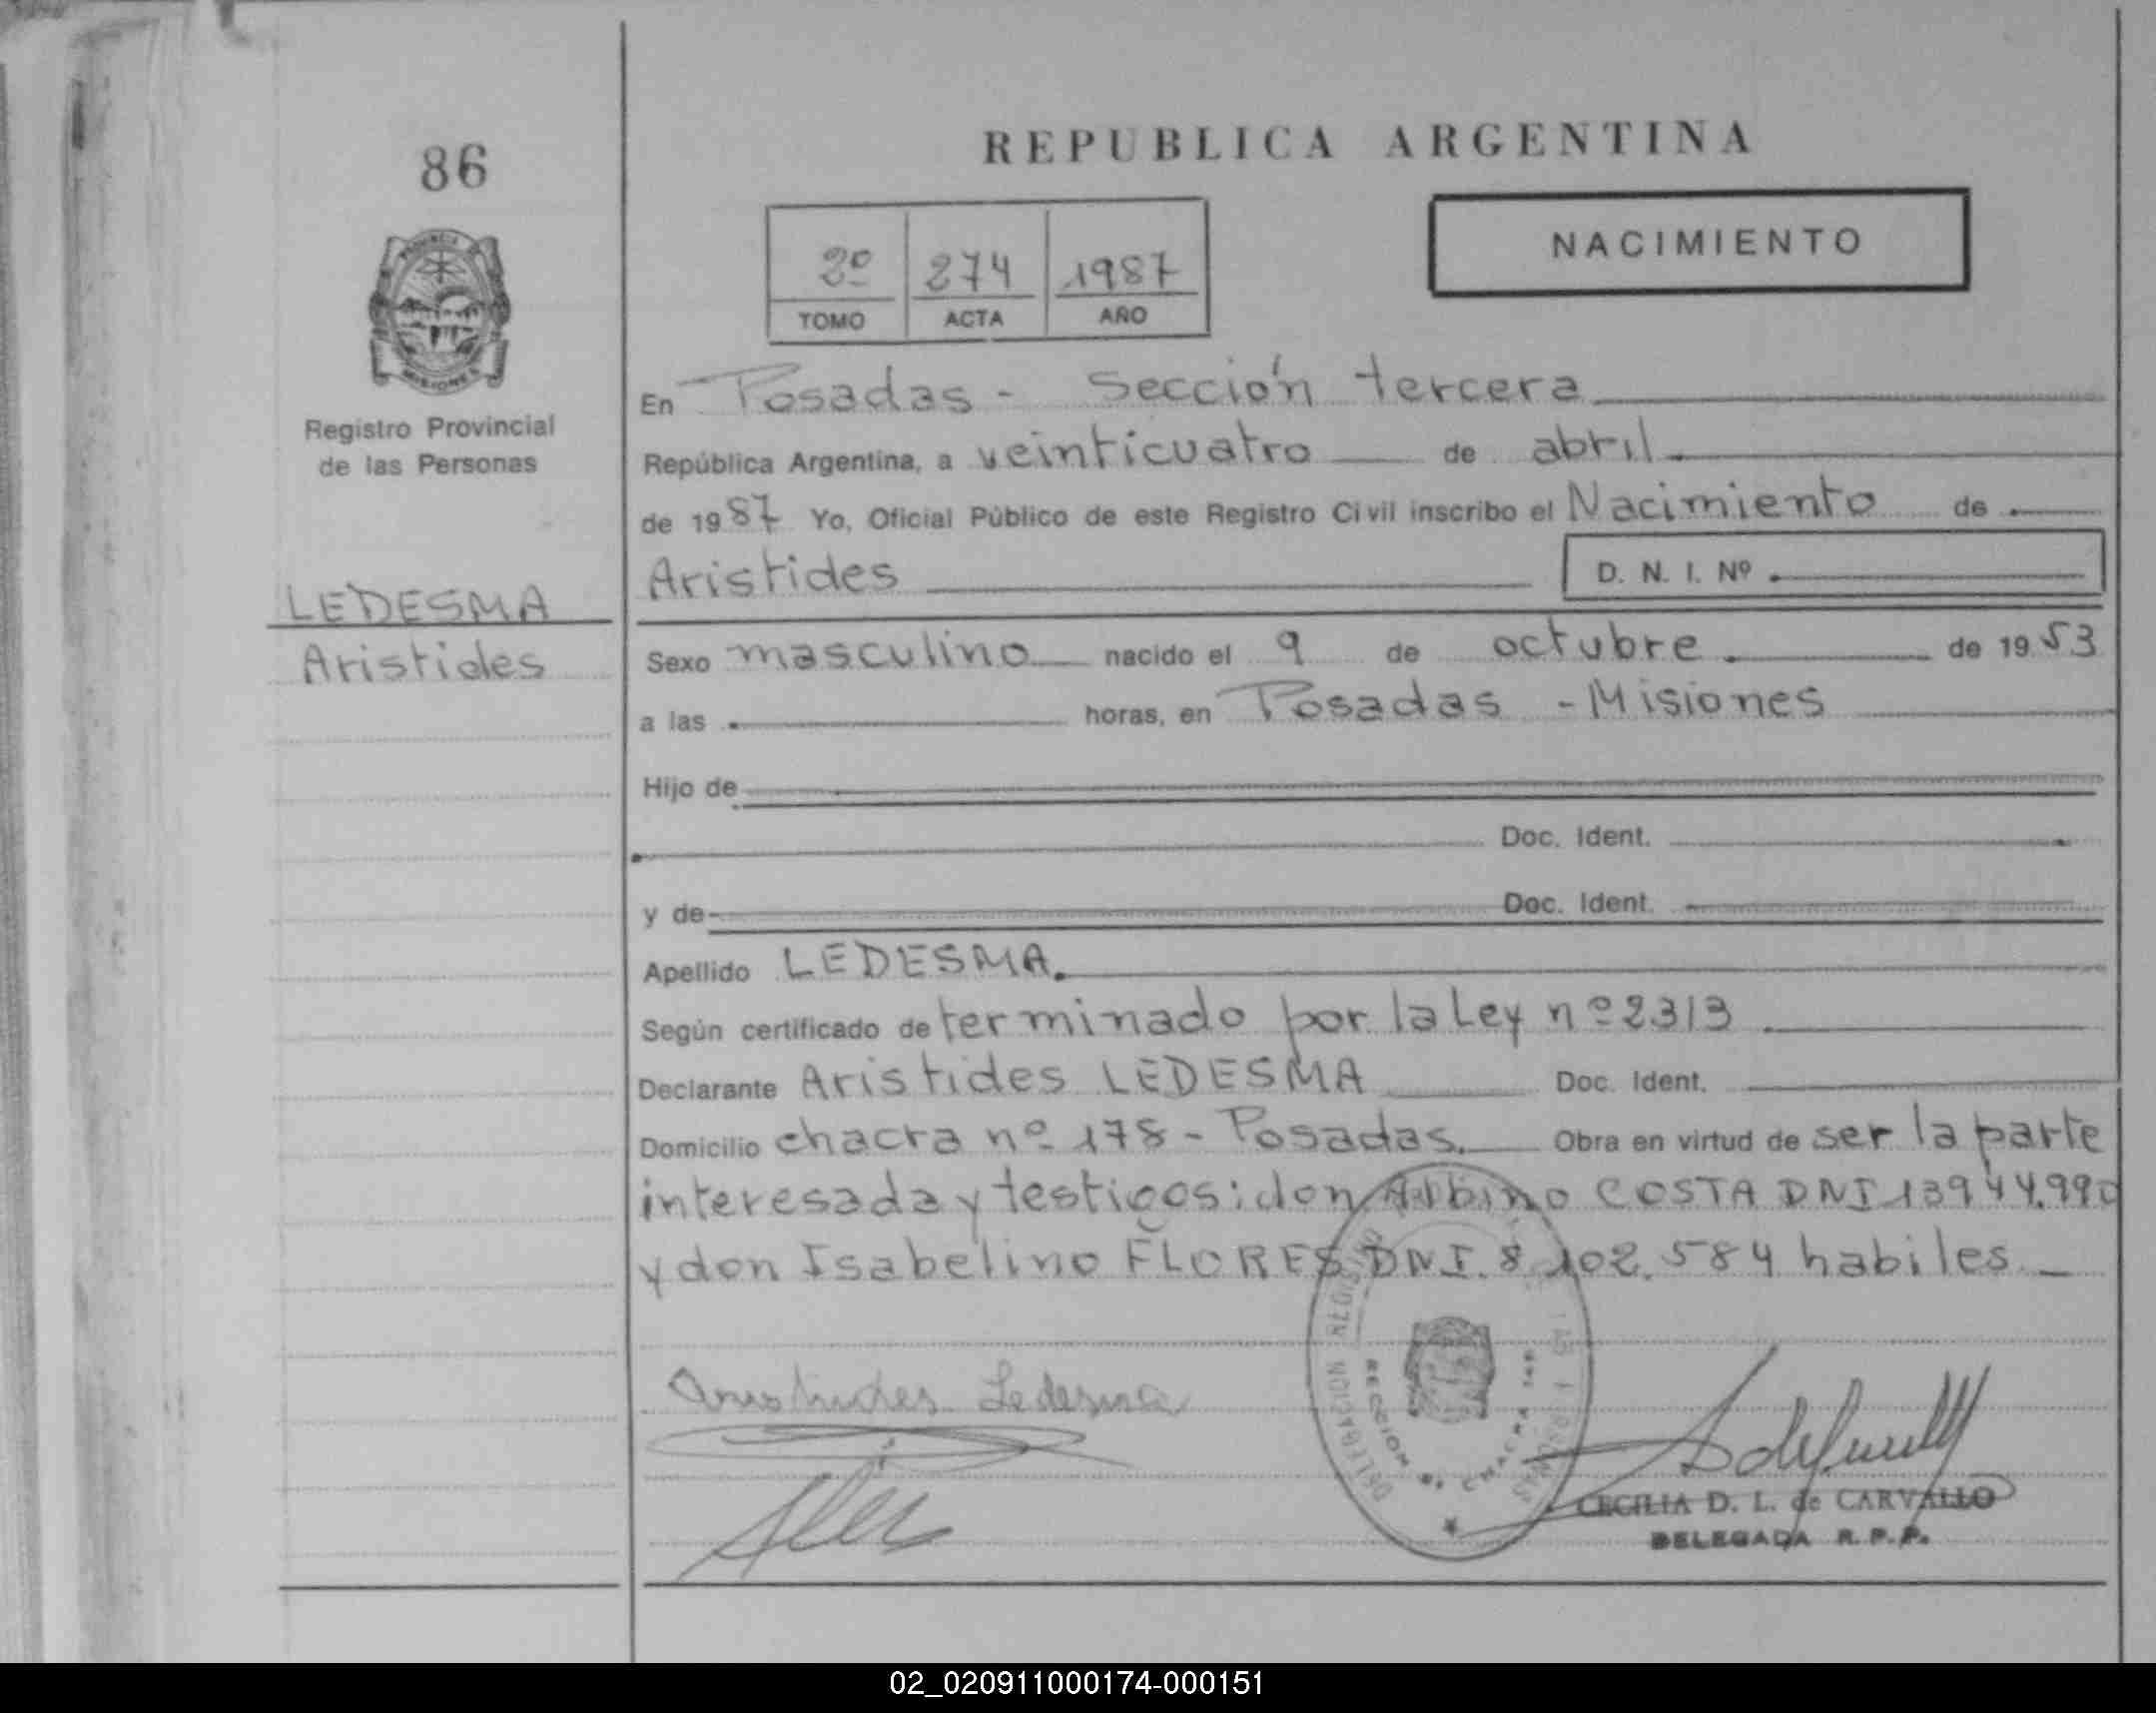 86
REPUBLICA ARGENTINA
NACIMIENTO
2º 274 1987
TOMO ACTA AÑO
MISIONES
Registro Provincial
de las Personas
LEDESMA
Aristides
En Posadas - Sección tercera
República Argentina, a veinticuatro de abril.
de 1987 Yo, Oficial Público de este Registro Civil inscribo el Nacimiento de
Aristides D. N. I. Nº
Sexo masculino nacido el 9 de octubre. de 1953
a las horas, en Posadas - Misiones
Hijo de
Doc. Ident.
y de Doc. Ident.
Apellido LEDESMA.
Según certificado determinado por la Ley nº 2313
Declarante Aristides LEDESMA Doc. Ident.
Domicilio chacra nº 178 - Posadas. Obra en virtud de ser la parte
interesada y testigos: don Albino COSTA DNI 13944.990
y don Isabelino FLORES DNI. 8.102.584 habiles
Aristides Ledesma
CECILIA D. L. de CARVALLO
DELEGADA R. P. P.
02_020911000174-000151